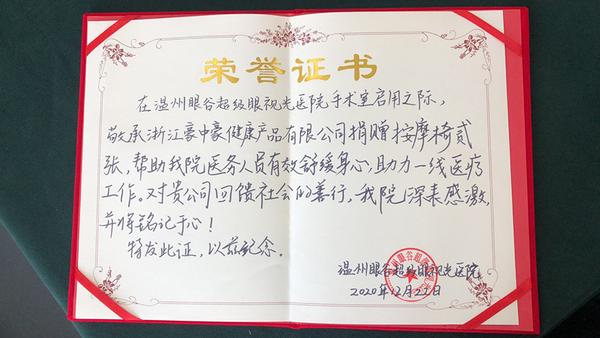 荣誉证书
在温州眼谷超级眼视光医院手术室启用之际,
敬承浙江豪中豪健康产品有限公司捐赠按摩椅贰
张,帮助我院医务人员有效舒缓身心,助力一线医疗
工作。对贵公司回馈社会的善行,我院深表感激,
并将铭记于心!
特发此证,以兹纪念。
温州眼谷超级眼视光医院
2020年12月22日